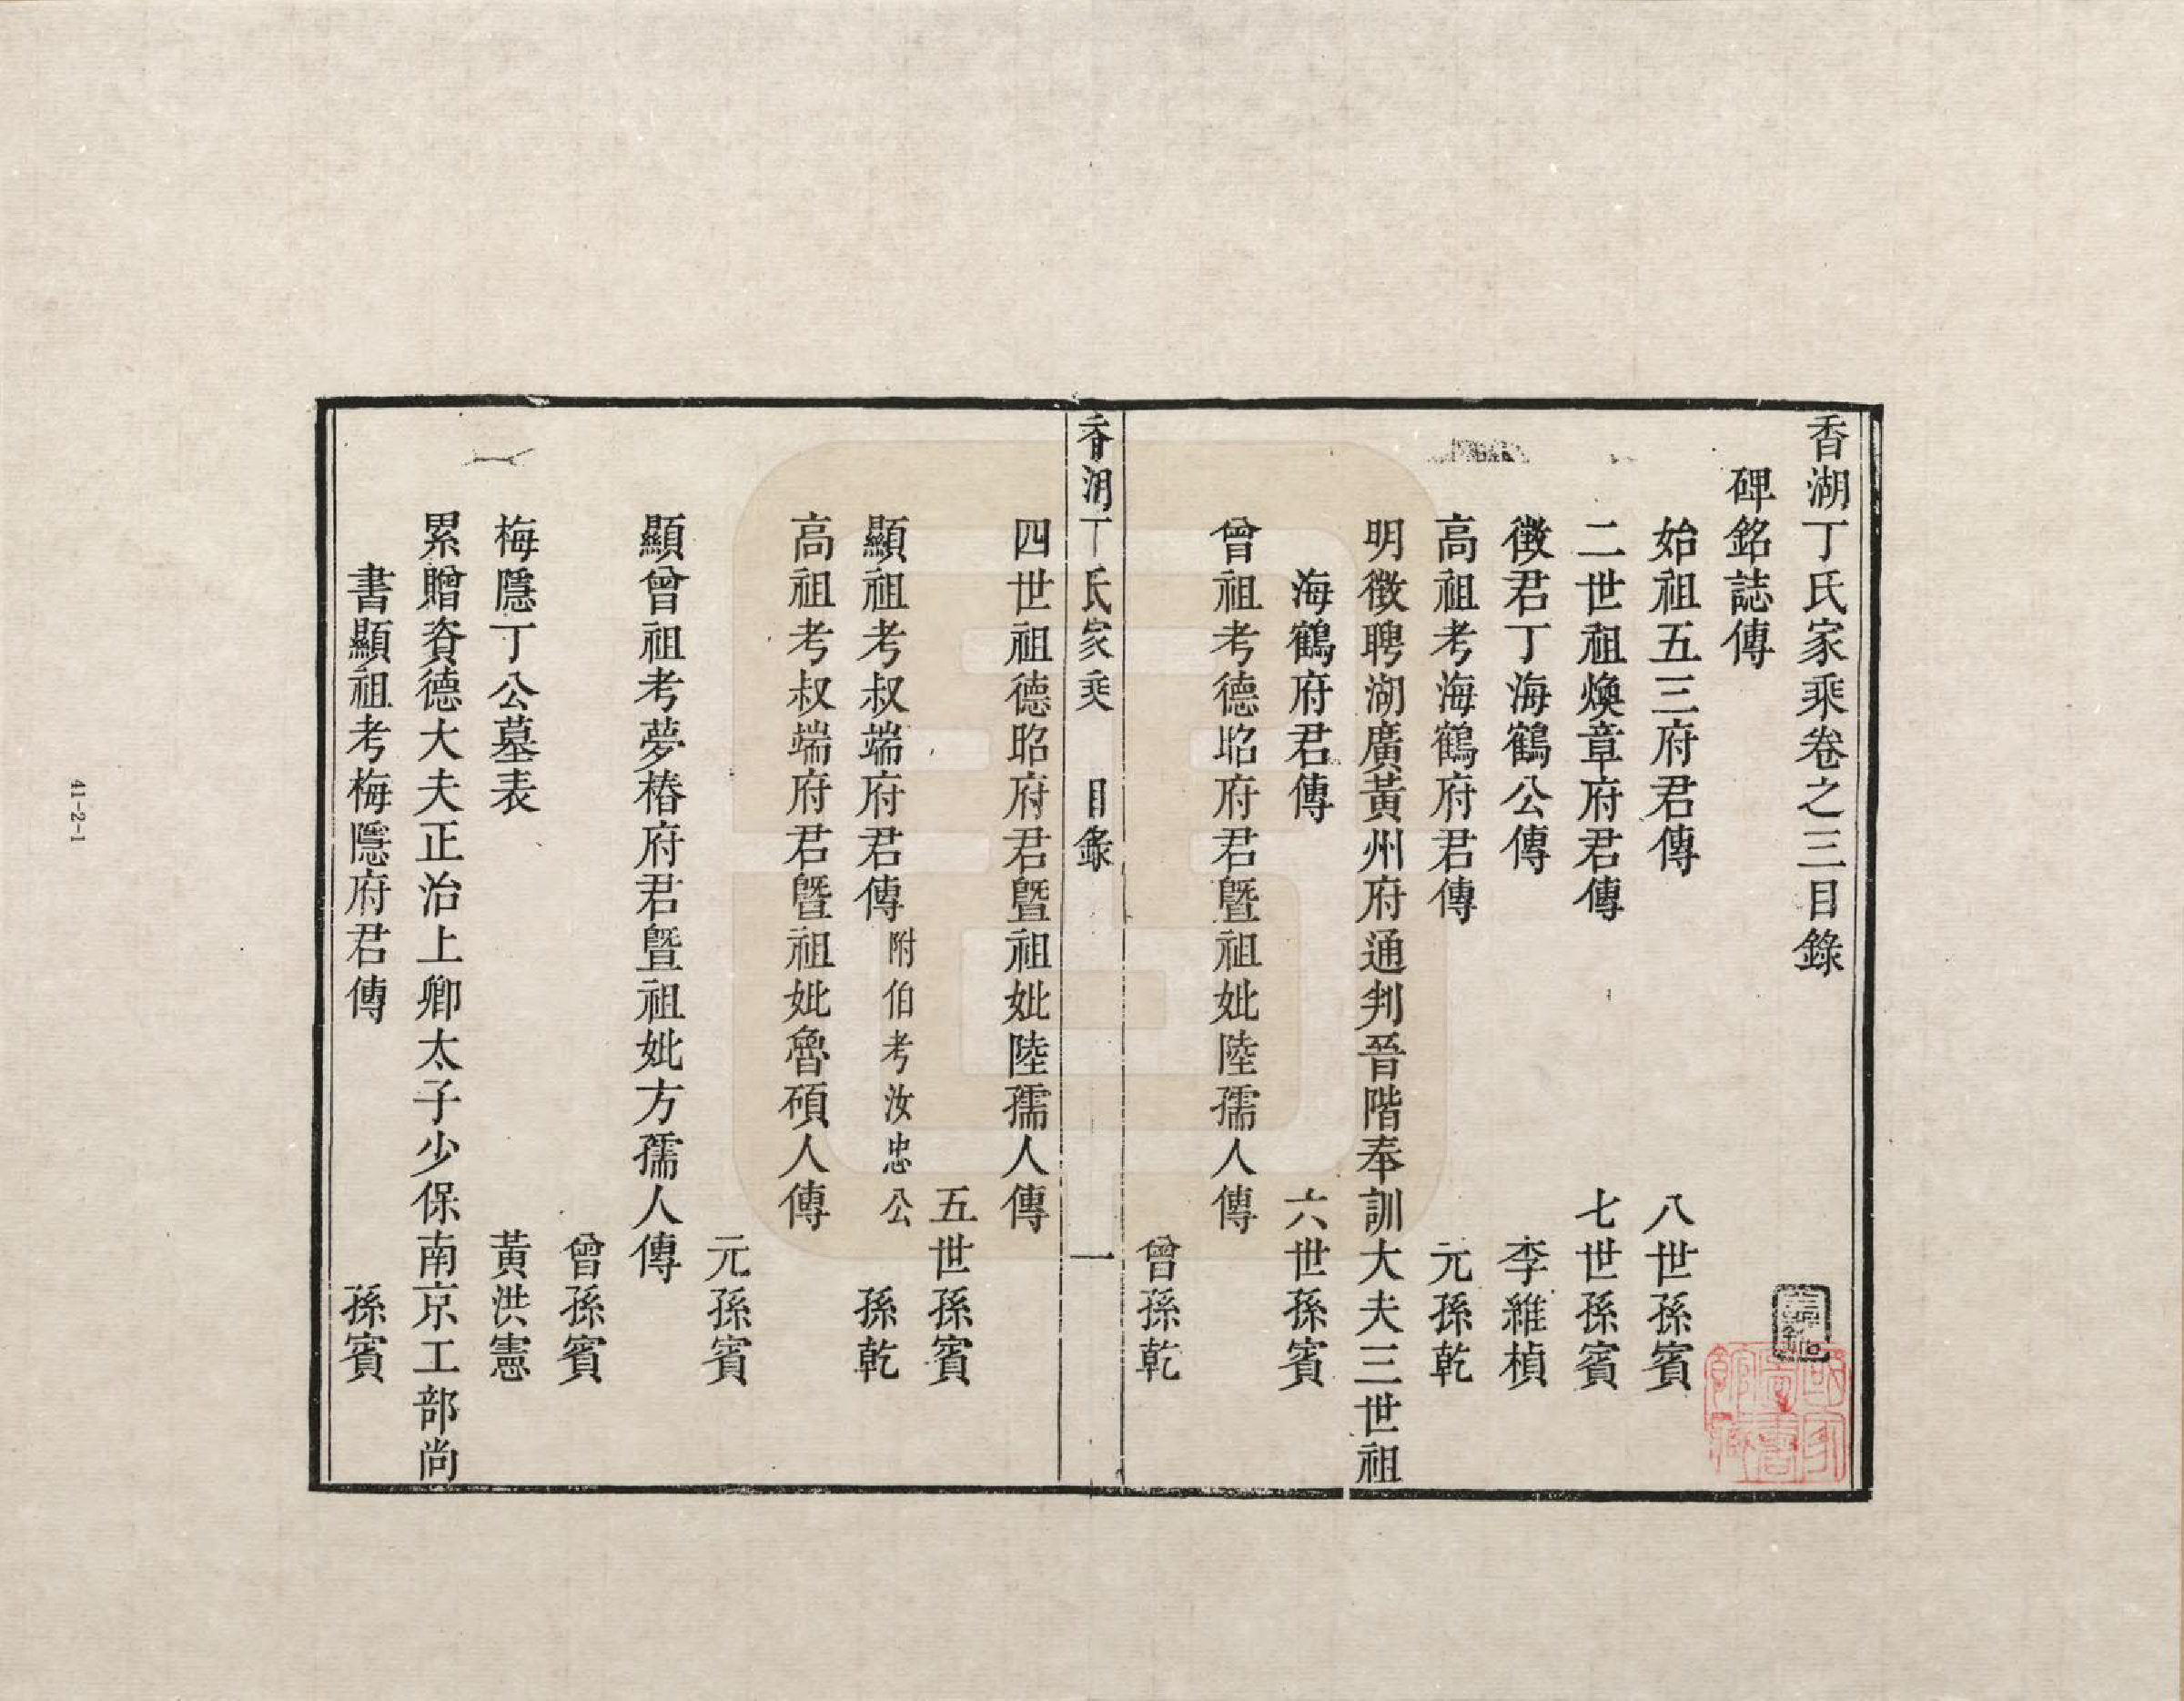 香湖丁氏家乘卷之三目錄
碑銘誌傳
始祖五三府君傳 八世孫賓
二世祖煥章府君傳 七世孫賓
徵君丁海鶴公傳 李維楨
高祖考海鶴府君傳 元孫乾
明徵聘湖廣黃州府通判晉階奉訓大夫三世祖
海鶴府君傳 六世孫賓
曾祖考德昭府君暨祖妣陸孺人傳
曾孫乾
香湖丁氏家乘 目錄 一
四世祖德昭府君暨祖妣陸孺人傳
五世孫賓
顯祖考叔端府君傳 附伯考汝忠公 孫乾
高祖考叔端府君暨祖妣魯碩人傳
元孫賓
顯曾祖考夢椿府君暨祖妣方孺人傳
曾孫賓
梅隱丁公墓表 黃洪憲
累贈資德大夫正治上卿太子少保南京工部尚
書顯祖考梅隱府君傳 孫賓
國家
圖書
館藏
41-2-1